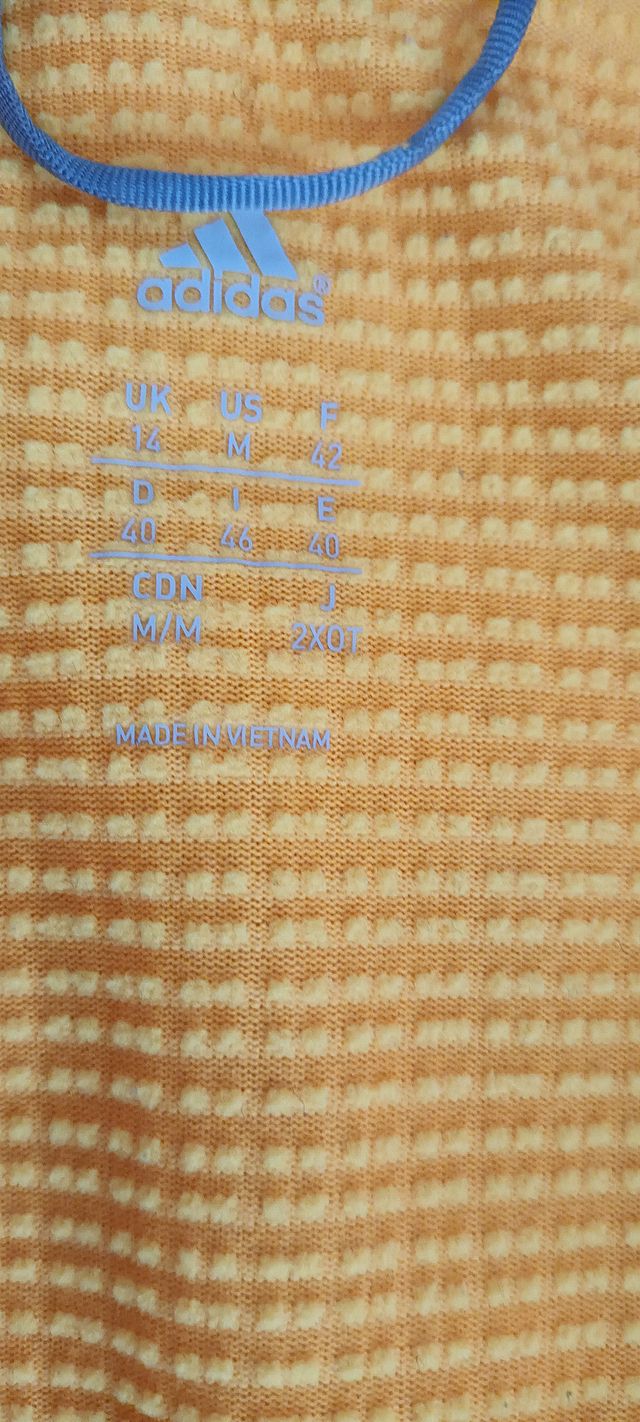 adidas®
UK US F
14 M 42
D I E
40 46 40
CDN J
M/M 2XOT
MADE IN VIETNAM